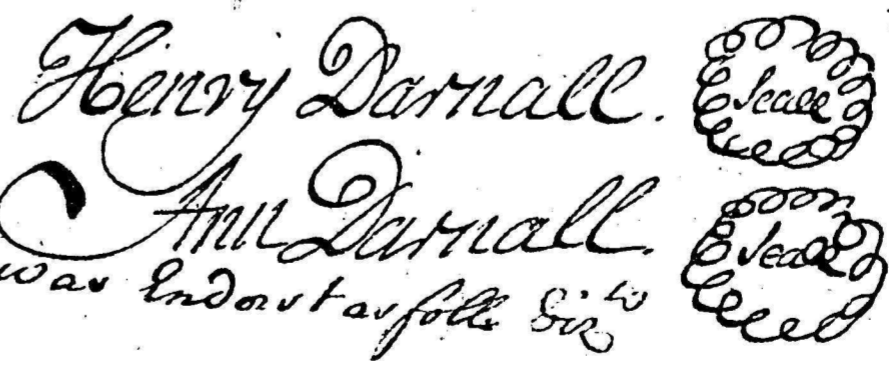 Henry Darnall. Seall
Ann Darnall. Seall
was Endorst as foll